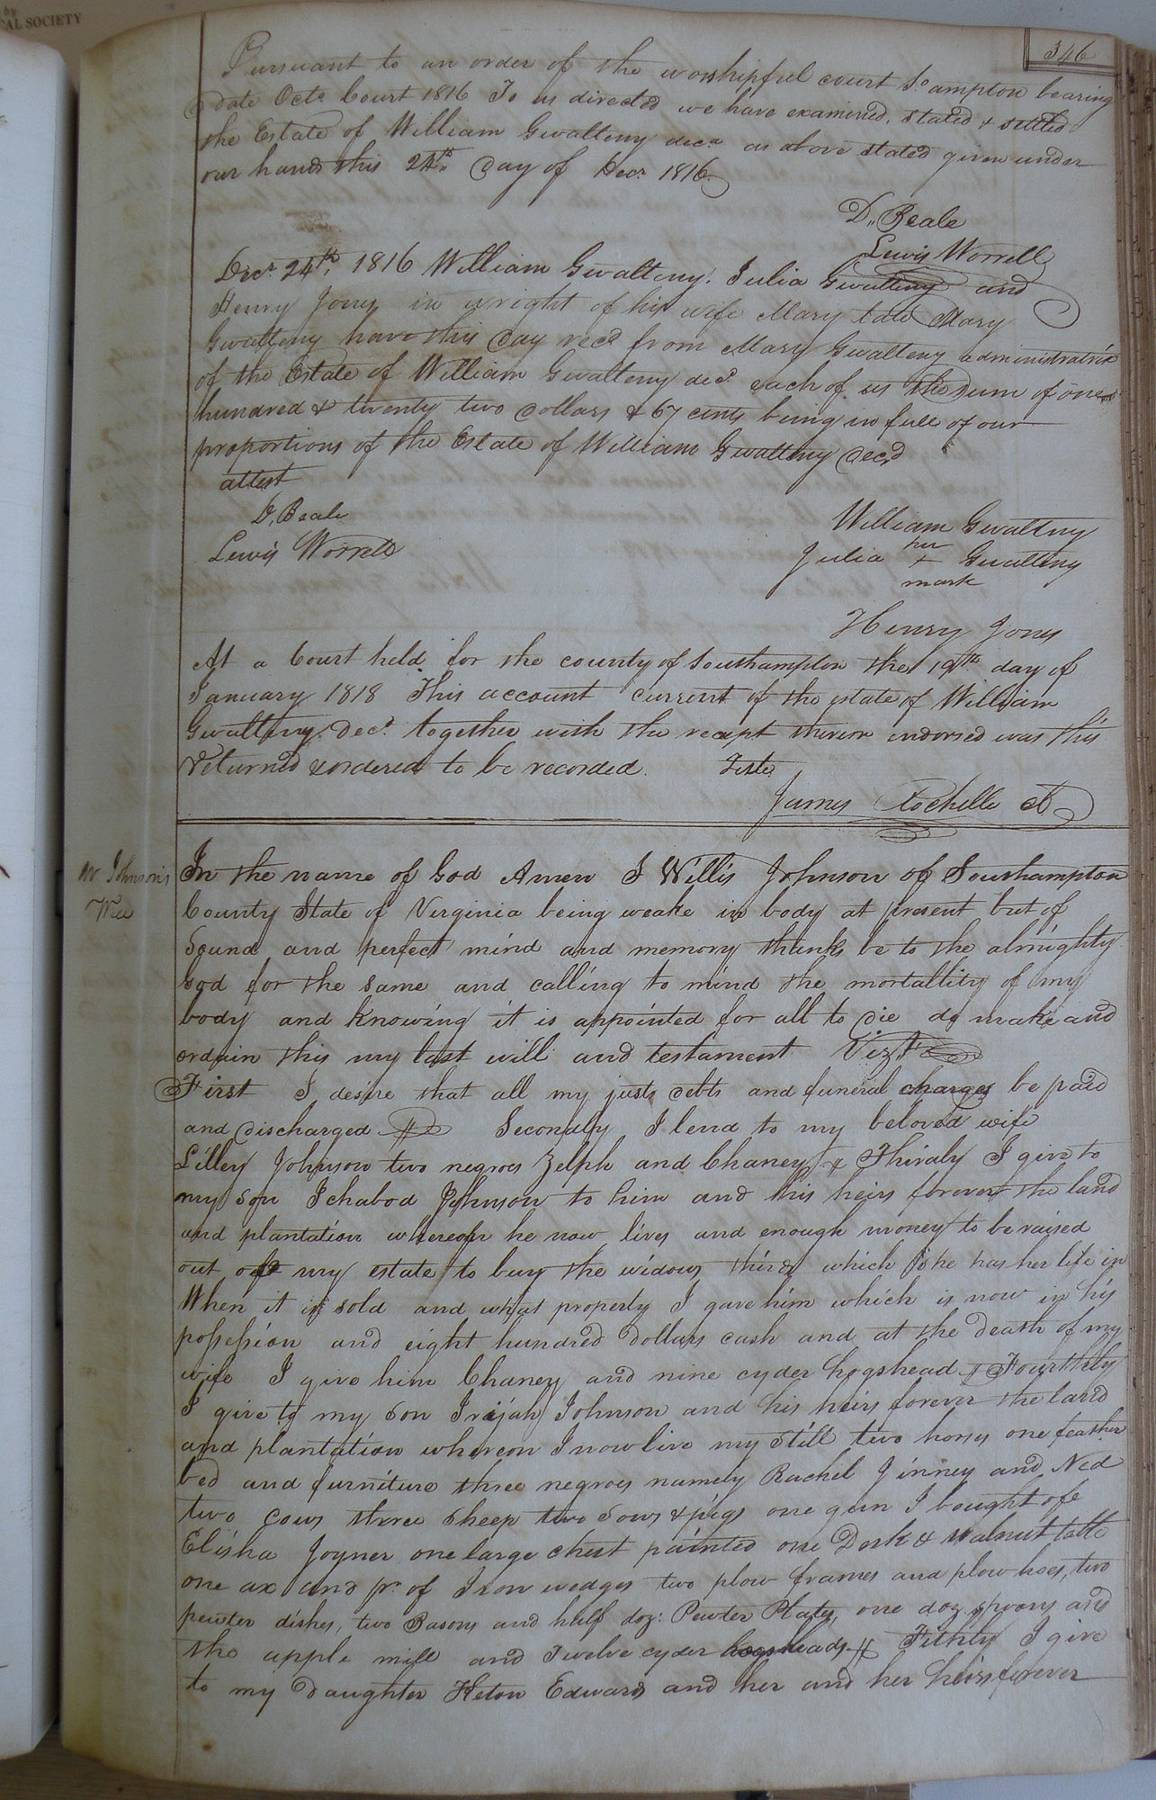 by
CAL SOCIETY
346
Pursuant to an order of the worshipful court So ampton bearing
date Octo. Court 1816 To us directed we have examined, stated & settled
the Estate of William Gwaltney decd. as above stated given under
our hands this 24th. day of Decr. 1816.
D. Beale
Lewis Worrell
Decr. 24th. 1816 William Gwaltney. Julia Gwaltney and
Henry Jones in wright of his wife Mary late Mary
Gwaltney have this day recd. from Mary Gwalteny administratrix
of the Estate of William Gwalteny decd. each of us the sum of one
hundred & twenty two dollars & 67 cents being in full of our
proportions of the Estate of William Gwaltney decd.
attest
D. Beale
William Gwaltny
Lewis Worrell
her
Julia + Gwalteny
mark
Henry Jones
At a Court held for the county of Southampton the 19th day of
January 1818 This account current of the estate of William
Gwaltny. Decd. together with the recept thereon endorsed was this
returned & ordered to be recorded. Teste
James Rochelle Ct
W Johnson's
Will
In the name of God Amen I Willis Johnson of Southampton
County State of Virginia being weake in body at present but of
Sound and perfect mind and memory thanks be to the almighty
god for the same and calling to mind the mortallity of my
body and knowing it is appointed for all to die do make and
ordain this my last will and testament Vizt
First I desire that all my just debts and funeral charges be paid
and discharged Secondly I lend to my beloved wife
Lilley Johnson two negroes Zelph and Chaney & Thirdly I give to
my son Ichabod Johnson to him and his heirs forever the land
and plantation whereon he now lives and enough money to be raised
out of my estate to buy the widows thirds which she has her life in
When it is sold and what property I gave him which is now in his
possession and eight hundred Dollars cash and at the death of my
wife I give him Chaney and nine cyder hogshead Fourthly
I give to my son Irijah Johnson and his heirs forever the land
and plantation whereon I now live my still two horses one feather
bed and furniture three negroes namely Rachel Jinney and Ned
two cows three Sheep two sows & pigs one gun I bought ofe
Elisha Joyner one large chest painted one Desk & walnut table
one ax and pr. of Iron wedges two plow frames and plow hoes, two
pewter dishes, two Basons and half doz: Pewter Plates, one doz spoons and
the apple mill and Twelve cyder hogsheads Fithly I give
to my Daughter Heton Edwards and her and her heirs forever